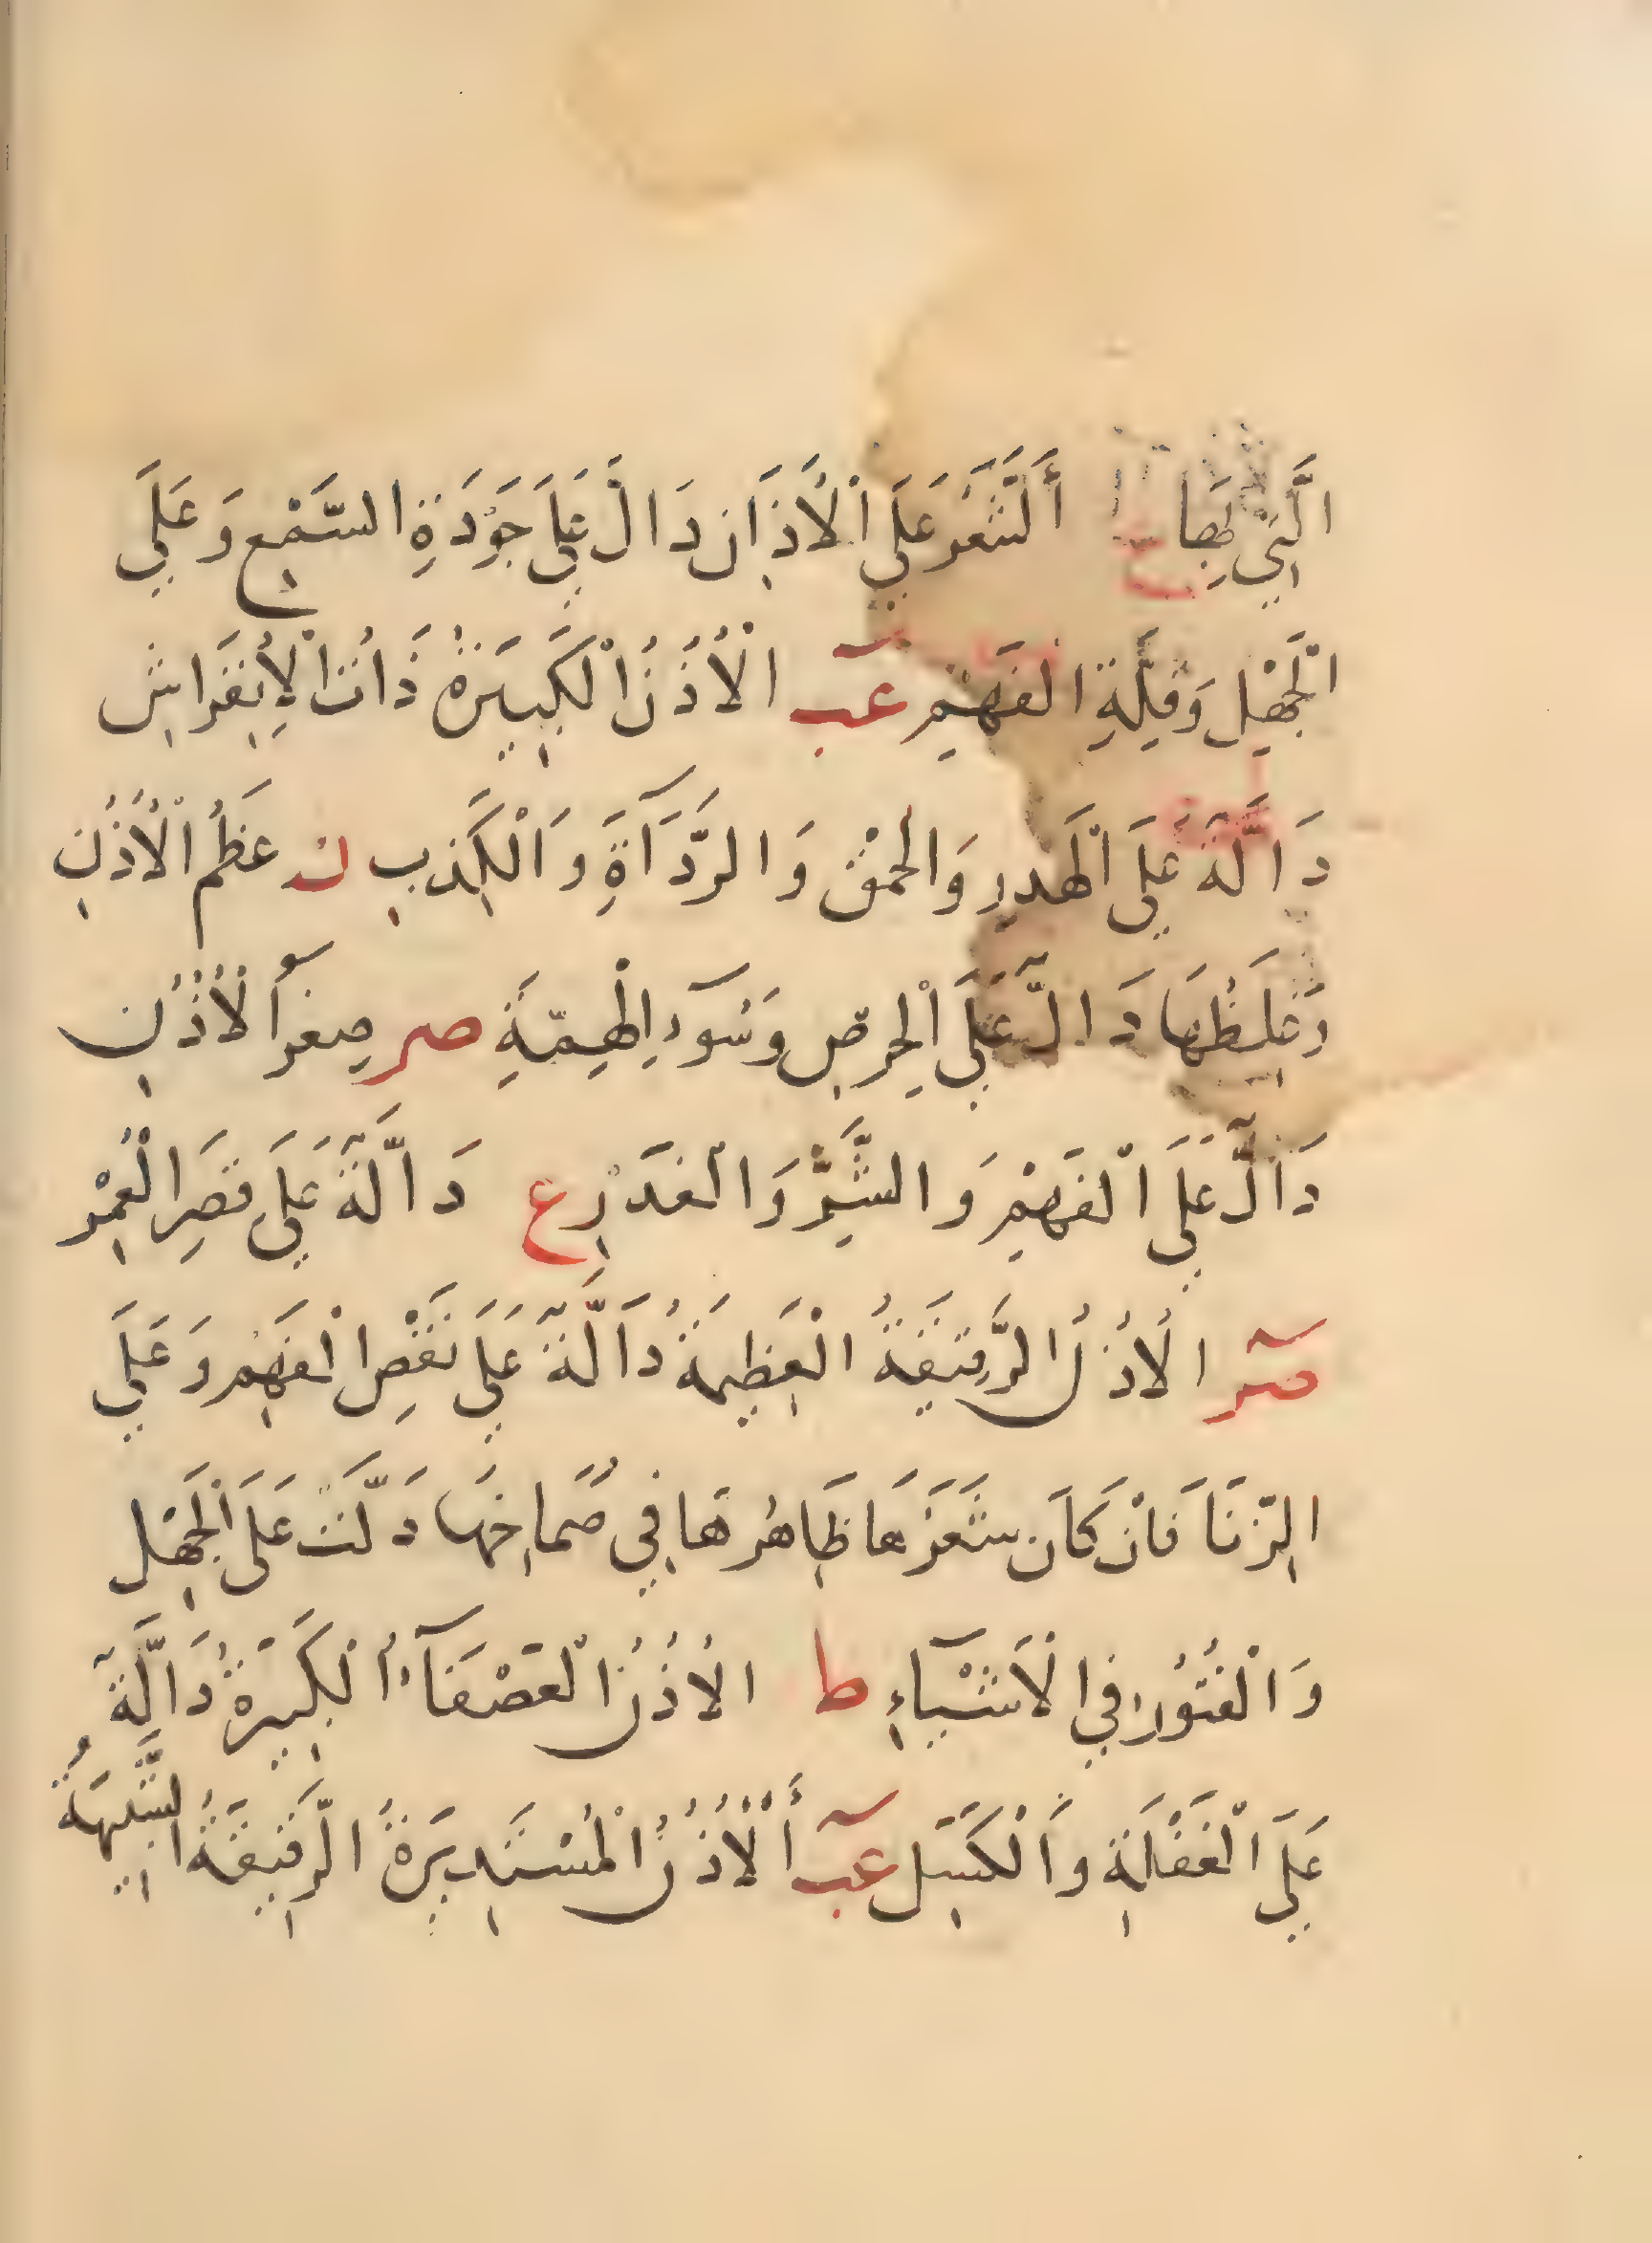 الَّتِي لِهَا ع أَلشَّعَرُ عَلَي الْأَذَانِ دَالٌ عَلَي جَوْدَةِ السَّمْعِ وَعَلَي
الْجَهْلِ وَقِلَّةِ الْفَهْمِ عب الْأُذُنُ الْكَبِيرَةُ ذَاتُ الْإِنفِرَاشِ
دَالَّةٌ عَلَي الْهَدرِ وَالحُمْقِ وَالرَّدَآةِ وَالْكَذِبِ ن عِظَمُ الْأُذُنِ
وَغِلَظُهَا دَالٌّ عَلَي الْحِرصِ وَسُوۤءِ الْهِمَّةِ صر صِغَرُ الْأُذُنِ
دَالٌّ عَلَي الْفَهْمِ وَالشَّرِّ وَالْغَدْرِ ع دَالَّةٌ عَلَي قِصَرِ الْعُمْرِ
صر الْأُذُنُ الرَّقِيقَةُ الْعَظِيمَةُ دَالَّةٌ عَلَي نَقْصِ الْفَهْمِ وَعَلَي
الزِّنَا فَانْ كَانَ شَعَرُهَا ظَاهِرُهَا فِي صُمَاخِهَا دَلَّتْ عَلَي الْجَهْلِ
وَالْفُتُورِ فِي الْأَشْيَاءِ ط الْأُذُنُ الْعَصْفَآءُ الْكَبِيرَةُ دَالَّةٌ
عَلَي الْغَفْلَةِ وَالْكَسَلِ عب أَلْأُذُنُ الْمُسْتَدِيرَةُ الرَّقِيقَةُ الشَّبِيهَةُ